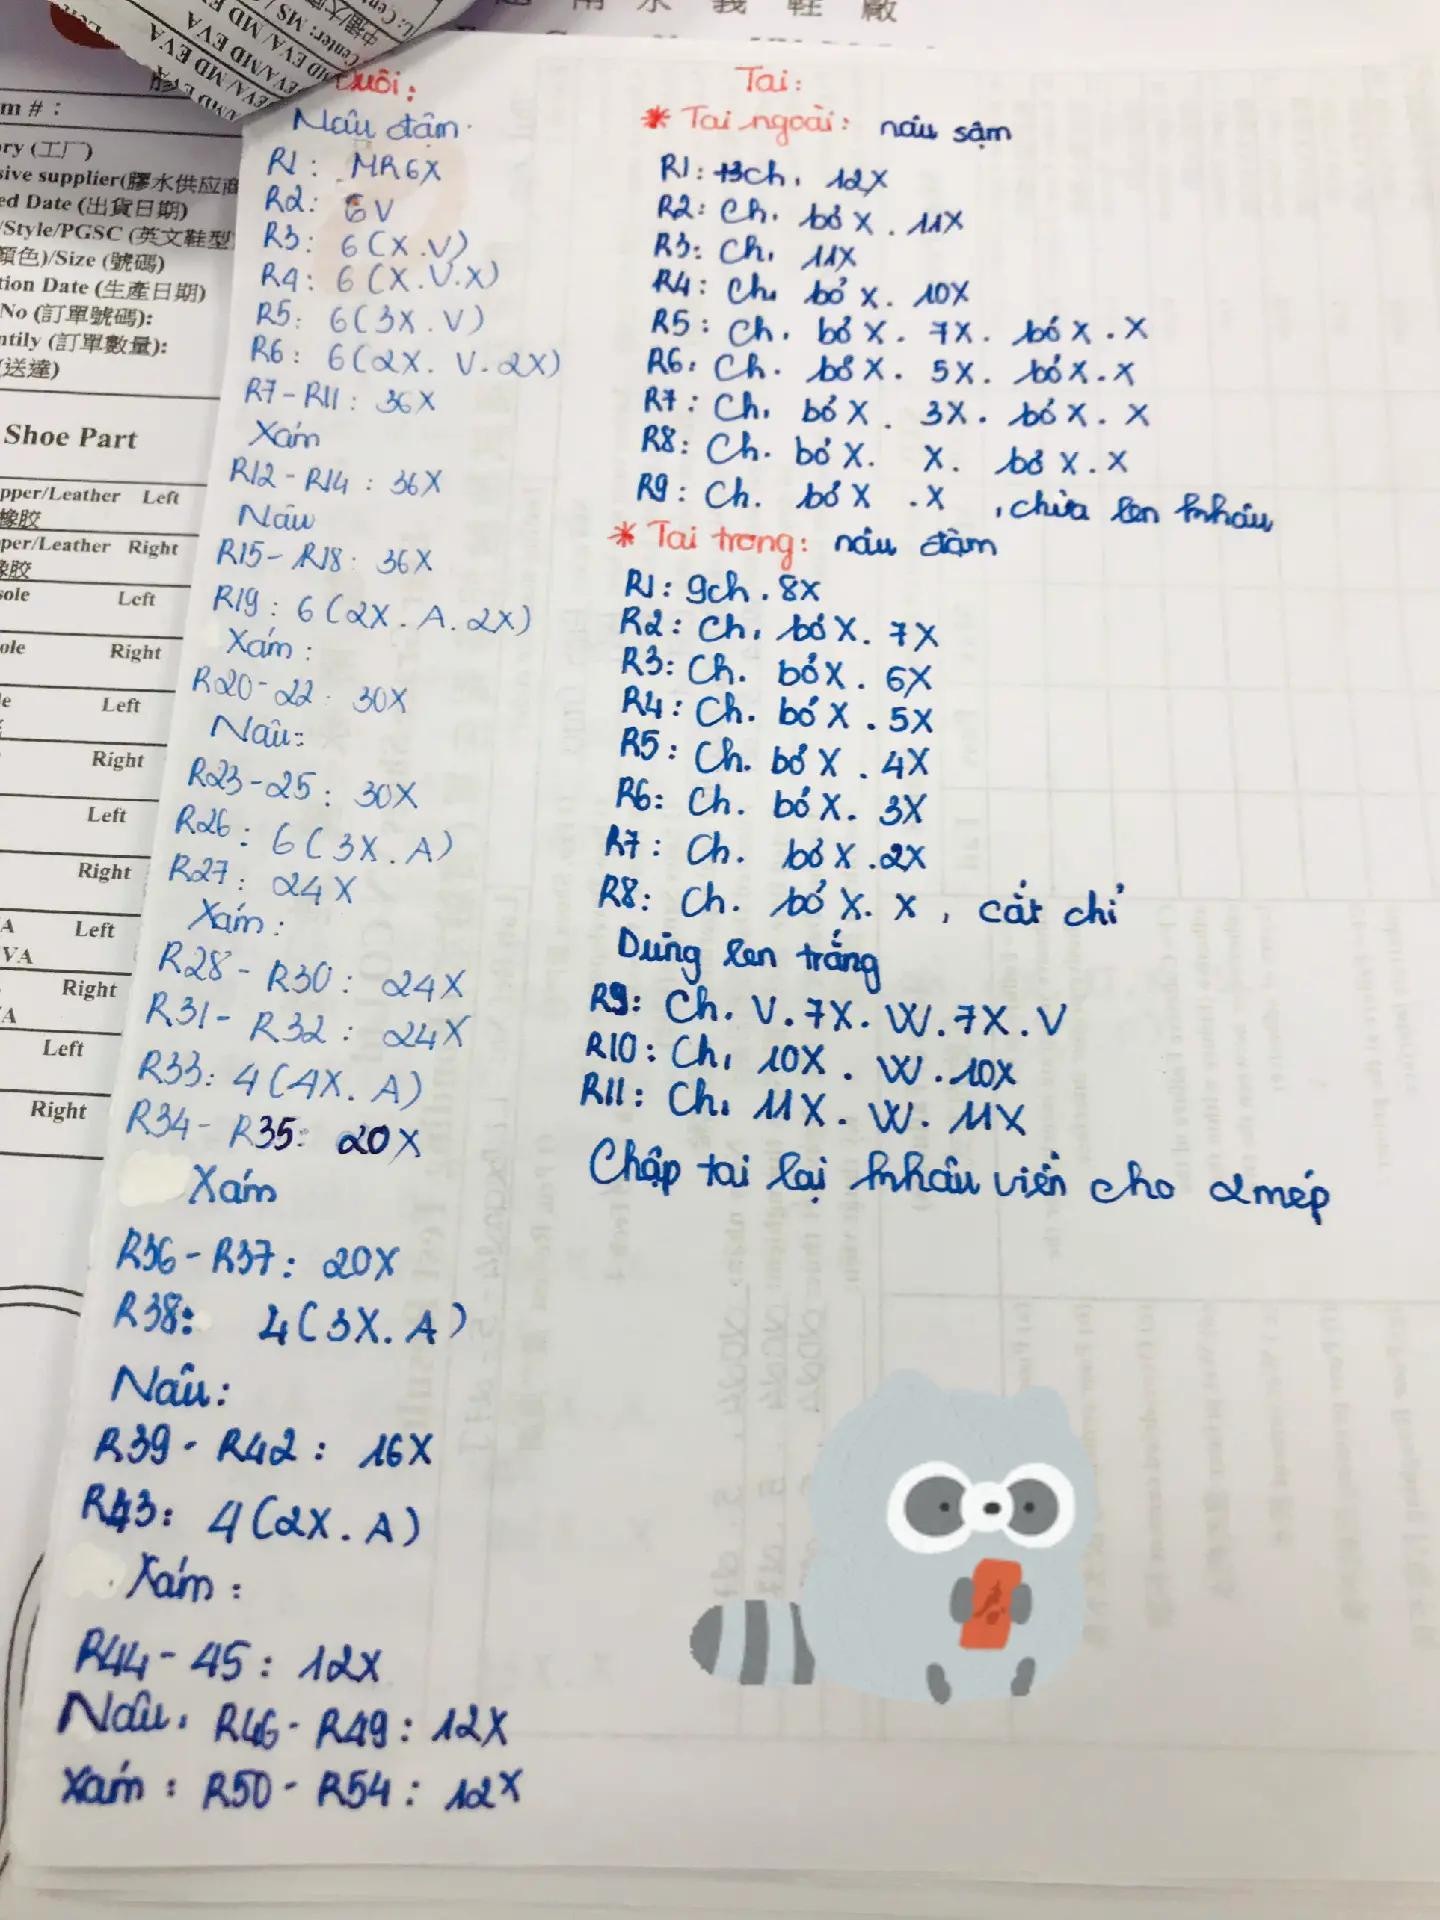 膠
m # :
ry (工厂)
sive supplier(膠水供应商
ed Date (出貨日期)
/Style/PGSC (英文鞋型
顏色)/Size (號碼)
tion Date (生產日期)
No (訂單號碼):
ntily (訂單數量):
(送達)
Shoe Part
pper/Leather Left
橡胶
per/Leather Right
橡胶
sole Left
ole Right
le Left
Right
Left
Right
A Left
VA
Right
A
Left
Right
Đuôi:
Nâu đậm.
R1: MR6X
R2: 6V
R3: 6(X.V)
R4: 6(X.V.X)
R5: 6(3X.V)
R6: 6(2X. V. 2X)
R7-R11: 36X
Xám
R12-R14: 36X
Nâu
R15-R18: 36X
R19: 6(2X. A. 2X)
Xám:
R20-22: 30X
Nâu:
R23-25: 30X
R26: 6(3X.A)
R27: 24X
Xám:
R28-R30: 24X
R31-R32: 24X
R33: 4(4X.A)
R34-R35: 20X
Xám
R36-R37: 20X
R38: 4(3X.A)
Nâu:
R39-R42: 16X
R43: 4(2X.A)
Xám:
R44-45: 12X
Nâu. R46-R49: 12X
Xám: R50-R54: 12X
Tai:
* Tai ngoài: nâu sậm
R1: 13ch. 12X
R2: Ch. bỏ X. 11X
R3: Ch. 11X
R4: Ch. bỏ X. 10X
R5: Ch. bỏ X. 7X. bỏ X. X
R6: Ch. bỏ X. 5X. bỏ X. X
R7: Ch. bỏ X. 3X. bỏ X. X
R8: Ch. bỏ X. X. bỏ X. X
R9: Ch. bỏ X .X , chừa len khâu
* Tai trong: nâu đậm
R1: 9ch. 8X
R2: Ch. bỏ X. 7X
R3: Ch. bỏ X. 6X
R4: Ch. bỏ X. 5X
R5: Ch. bỏ X. 4X
R6: Ch. bỏ X. 3X
R7: Ch. bỏ X. 2X
R8: Ch. bỏ X. X, cắt chỉ
Dùng len trắng
R9: Ch. V. 7X. W. 7X. V
R10: Ch. 10X. W. 10X
R11: Ch. 11X. W. 11X
Chập tai lại khâu viền cho 2 mép